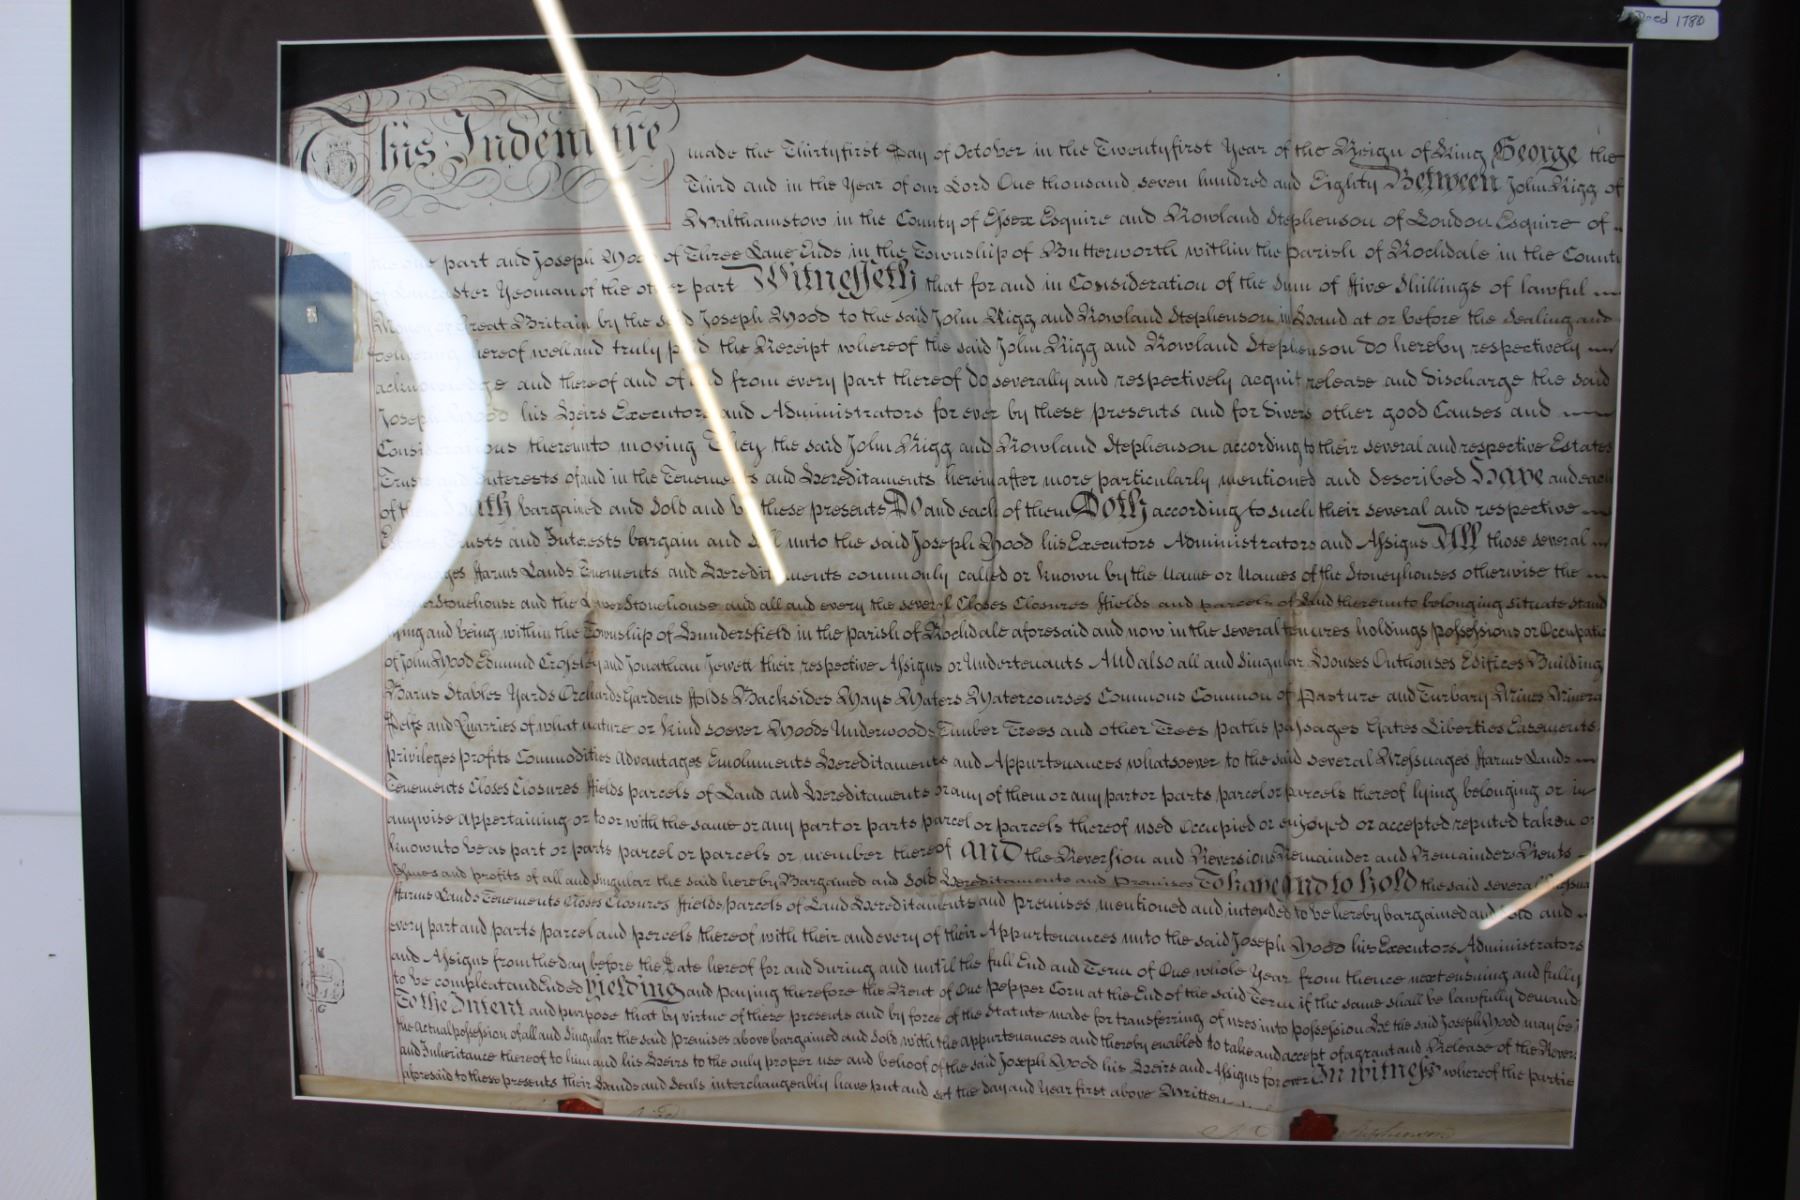 Deed 1780
This Indenture
made the Thirtyfirst Day of October in the Twentyfirst Year of the Reign of King George the
Third and in the Year of our Lord One thousand seven hundred and Eighty Between John Rigg of
Walthamstow in the County of Essex Esquire and Rowland Stephenson of London Esquire of
the one part and Joseph Wood of Three Lane Ends in the Township of Butterworth within the Parish of Rochdale in the County
of Lancaster Yeoman of the other part Witnesseth that for and in Consideration of the Sum of five Shillings of lawful
Money of Great Britain by the said Joseph Wood to the said John Rigg and Rowland Stephenson in Hand at or before the Sealing and
delivering hereof well and truly paid the Receipt whereof the said John Rigg and Rowland Stephenson do hereby respectively
acknowledge and thereof and of and from every part thereof do severally and respectively acquit release and discharge the said
Joseph Wood his Heirs Executors and Administrators for ever by these presents and for divers other good Causes and
Considerations thereunto moving They the said John Rigg and Rowland Stephenson according to their several and respective Estates
Trusts and Interests of and in the Tenements and Hereditaments herein after more particularly mentioned and described Have and each
of them Hath bargained and Sold and by these presents Do and each of them Doth according to such their several and respective
Estates Trusts and Interests bargain and sell unto the said Joseph Wood his Executors Administrators and Assigns All those several
Messuages ffarms Lands Tenements and Hereditaments commonly called or known by the Name or Names of the Stoneyhouses otherwise the
Stonehouse and the Lower Stonehouse and all and every the several Closes Closures ffields and parcels of Land thereunto belonging situate stand
lying and being within the Township of Hundersfield in the Parish of Rochdale aforesaid and now in the several tenures holdings possessions or Occupatio
of John Wood Edmund Crossley and Jonathan Jewett their respective Assigns or Undertenants And also all and Singular Houses Outhouses Edifices Building
Barns Stables Yards Orchards Gardens ffolds Backsides Ways Waters Watercourses Commons Common of Pasture and Turbary Mines Minera
Delfs and Quarries of what nature or kind soever Woods Underwoods Timber Trees and other Trees paths passages Gates Liberties Easements
privileges profits Commodities Advantages Emoluments Hereditaments and Appurtenances whatsoever to the said several Messuages ffarms Lands
Tenements Closes Closures ffields parcels of Land and Hereditaments or any of them or any part or parts parcel or parcels thereof lying belonging or in
anywise appertaining or to or with the same or any part or parts parcel or parcels thereof used Occupied or enjoyed or accepted reputed taken or
known to be as part or parts parcel or parcels or member thereof And the Reversion and Reversions Remainder and Remainders Rents
Issues and profits of all and singular the said hereby Bargained and Sold Hereditaments and Premises To have and to hold the said several Messua
ffarms Lands Tenements Closes Closures ffields parcels of Land Hereditaments and premises mentioned and intended to be hereby bargained and sold and
every part and parts parcel and percels thereof with their and every of their Appurtenances unto the said Joseph Wood his Executors Administrators
and Assigns from the day before the Date hereof for and during and until the full End and Term of One whole Year from thence next ensuing and fully
to be compleat and Ended Yielding and paying therefore the Rent of One pepper Corn at the End of the said Term if the same shall be lawfully demand
To the Intent and purpose that by virtue of these presents and by force of the Statute made for transferring of uses into possession He the said Joseph Wood may be
the Actual possession of all and singular the said Premises above bargained and sold with the appurtenances and thereby enabled to take and accept of a grant and Release of the Revers
and Inheritance thereof to him and his Heirs to the only proper use and behoof of the said Joseph Wood his Heirs and Assigns for ever In Witness whereof the partie
aforesaid to these presents their Hands and Seals interchangeably have put and set the day and Year first above Written